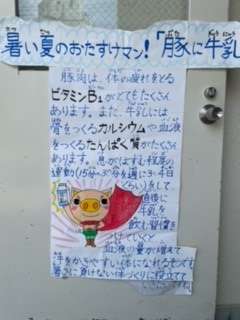 暑い夏のおたすけマン!「豚に牛乳
豚肉は、体の疲れをとる
ビタミンB1がとてもたくさん
あります。また、牛乳には
骨をつくるカルシウムや血液
をつくるたんぱく質がたくさん
あります。息がはずむ程度の
運動(15分~30分を週に3~4日
くらい)をして
直後に
牛乳を
飲む習慣を
血液の量が増えて
汗をかきやすい体になれるそうです。
暑さに負けない体づくりに役立てて